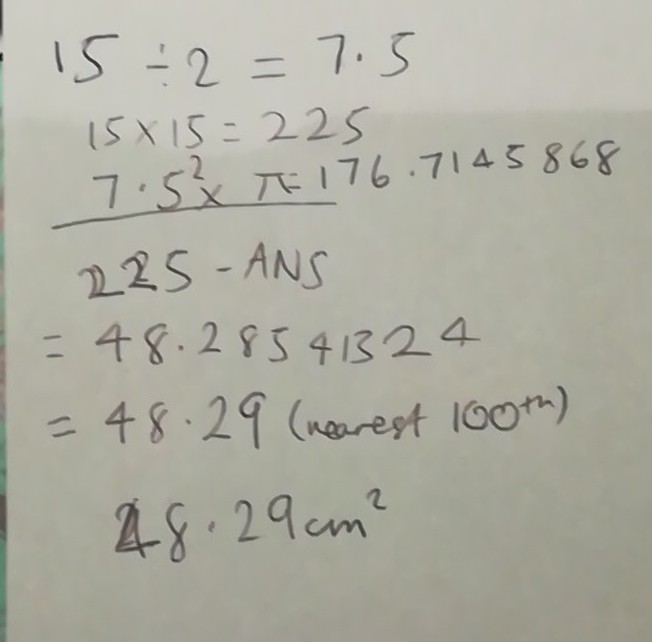 15 ÷ 2 = 7.5
15 × 15 = 225
7.5² × π = 176.7145868
225 - ANS
= 48.28541324
= 48.29 (nearest 100th)
48.29cm²